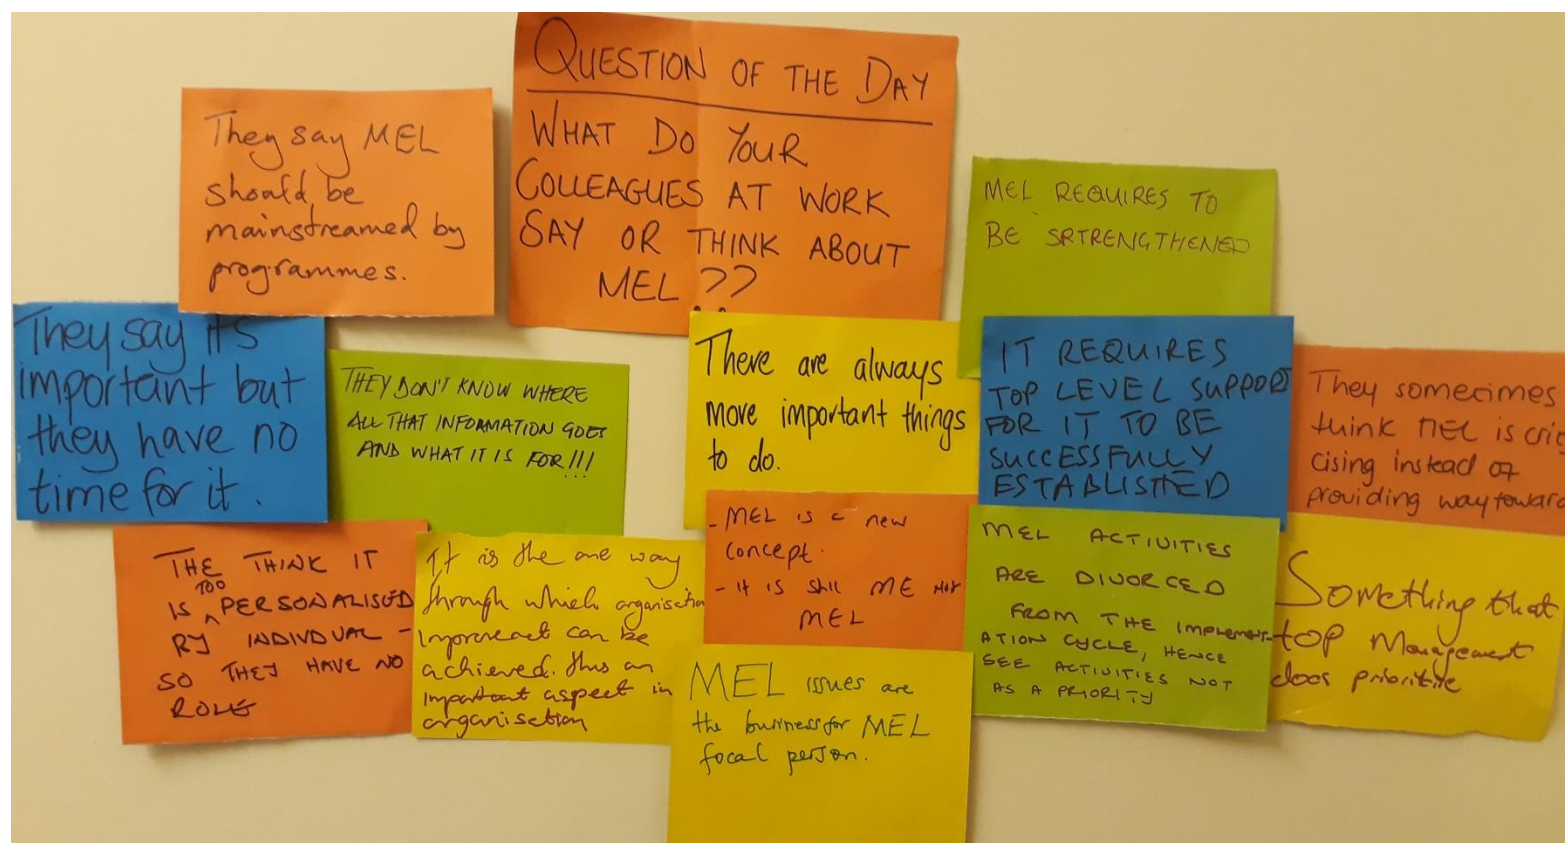 QUESTION OF THE DAY
WHAT DO YOUR
COLLEAGUES AT WORK
SAY OR THINK ABOUT
MEL ??
They say MEL
should be
mainstreamed by
programmes.
MEL REQUIRES TO
BE SRTRENGTHENED
They say it's
important but
they have no
time for it.
THEY DON'T KNOW WHERE
ALL THAT INFORMATION GOES
AND WHAT IT IS FOR!!!
There are always
more important things
to do.
IT REQUIRES
TOP LEVEL SUPPORT
FOR IT TO BE
SUCCESSFULLY
ESTABLISHED
They somecimes
think MEL is criti
cising instead of
providing way toward
THE THINK IT
IS TOO PERSONALISED
BY INDIVDUAL -
SO THEY HAVE NO
ROLE
It is the one way
through which organisation
improvement can be
achieved. this an
important aspect in
organisation
- MEL is a new
concept.
- it is still ME not
MEL
MEL ACTIVITIES
ARE DIVORCED
FROM THE IMPLEMENT-
ATION CYCLE, HENCE
SEE ACTIVITIES NOT
AS A PRIORITY
Something that
top Management
does prioritise
MEL issues are
the business for MEL
focal person.